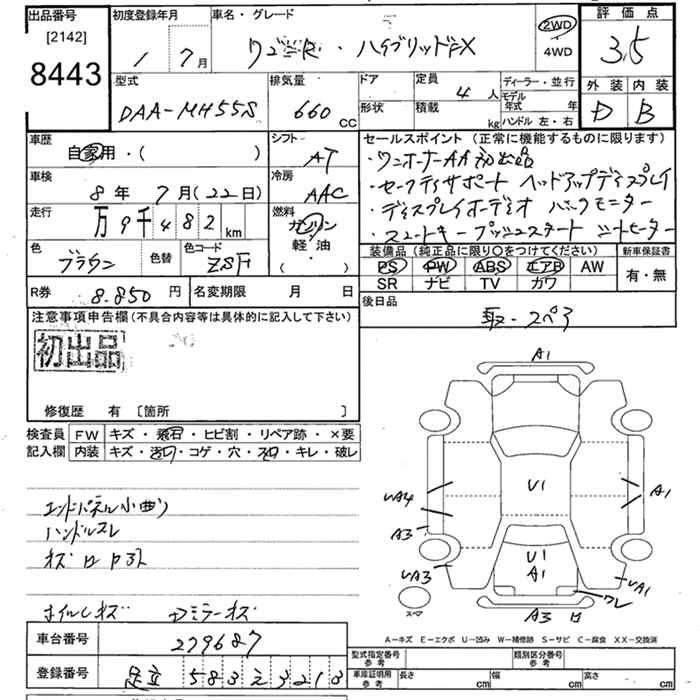 出品番号 初度登録年月 車名・グレード 評価点
[2142] 2WD
8443 1 / 7月 ワゴンR・ハイブリッドFX 4WD 3.5
型式 排気量 ドア 定員 4人 ディーラー・並行 外装 内装
DAA-MH55S 660 CC 形状 積載 kg モデル年式 年 D B
ハンドル 左・右
車歴 シフト セールスポイント（正常に機能するものに限ります）
自家用・( ) AT ・ワンオーナーAA初出品
車検 冷房 ・セーフティサポート ヘッドアップディスプレイ
8年 7月(22日) AAC ・ディスプレイオーディオ バックモニター
走行 燃料 ・スマートキー プッシュスタート シートヒーター
万9千482km ガソリン
色 色替 色コード 軽・油 装備品（純正品に限り○をつけてください） 新車保証書
ブラウン ZSF ( ) PS PW ABS エアB AW 有・無
SR ナビ TV カワ
R券 8.850円 名変期限 月 日 後日品
注意事項申告欄（不具合内容等は具体的に記入して下さい） 取・スペア
初出品
修復歴 有 〔箇所 〕
検査員 FW キズ・飛石・ヒビ割・リペア跡・×要
記入欄 内装 キズ・汚れ・コゲ・穴・スレ・キレ・破レ
A1
U1
WA4
A1
A3
U1
A1
UA3
UA1
ワレ
スペア
A3
エンドパネル小曲り
ハンドルスレ
ホイルキズ ミラーキズ
A－キズ E－エクボ U－凹み W－補修跡 S－サビ C－腐食 XX－交換済
車台番号 279687 型式指定番号 参考 類別区分番号 参考
登録番号 足立 583 え 3213 車庫証明用 参考 長さ cm 幅 cm 高さ cm